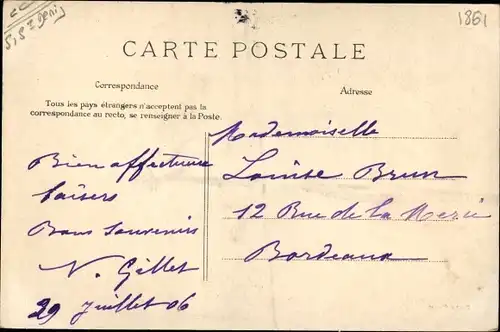 1861
CARTE POSTALE
Correspondance
Adresse
Tous les pays étrangers n'acceptent pas la
correspondance au recto, se renseigner à la Poste.
Mademoiselle
Louise Brun
12 Rue de la Merci
Bordeaux
Bien affectueux
baisers
Bons Souvenirs
N. Gillet
29 Juillet 06